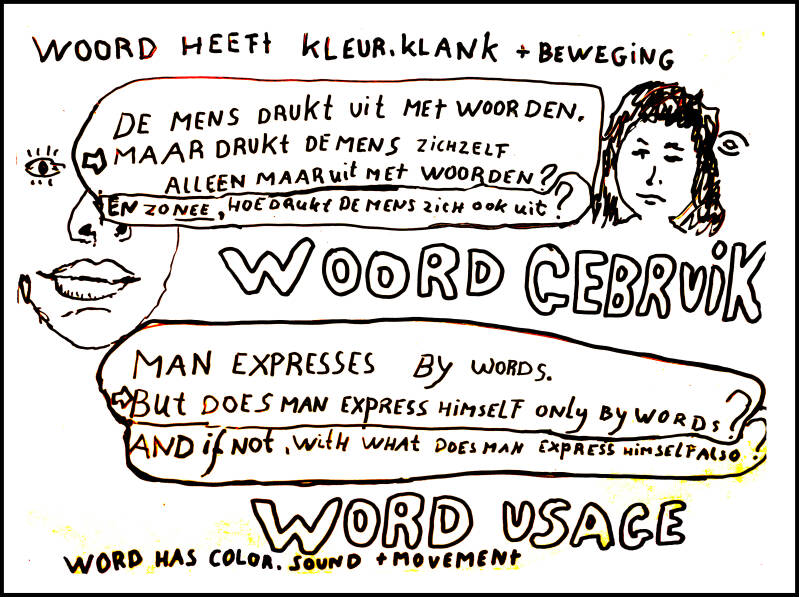 WOORD HEEFt KLEUR.KLANK + BEWEGING
DE MENS DRUKT Uit MET WOORDEN.
MAAR DRUKT DE MENS ZICHZELF
ALLEEN MAAR Uit MET WOORDEN?
EN ZO NEE, HOE DRUKT DE MENS ZICH OOK Uit?
WOORD GEBRUiK
MAN EXPRESSES BY WORDS.
BUt DOES MAN EXPRESS HiMSELF ONLY BY WORDS?
AND if NOt, WitH WHAT DOES MAN EXPRESS HiMSELF ALSO?
WORD USAGE
WORD HAS COLOR. SOUND + MOVEMENt